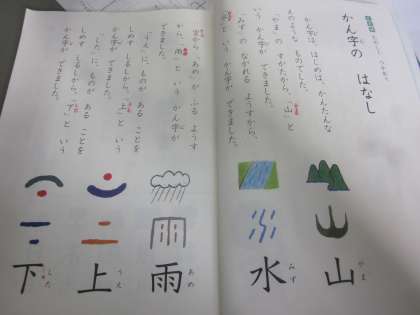 かん字の はなし
かん字は、はじめは、かんたんな
えのような ものでした。
「やま」の すがたから、「山」と
いう かん字が できました。
「みず」の ながれる ようすから、
「水」と いう かん字が できました。
空から「あめ」が ふる ようす
から、「雨」と いう かん字が
できました。
「うえ」に ものが ある ことを
しめす しるしから、「上」と いう
かん字が できました。
「した」に ものが ある ことを
しめす しるしから、「下」と いう
かん字が できました。
山
やま
水
みず
雨
あめ
上
うえ
下
した